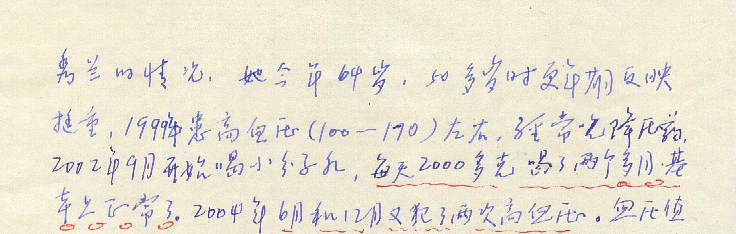 秀兰的情况，她今年64岁，50多岁时更年期反映
挺重，1999年患高血压(100—170)左右，经常吃降压药，
2002年9月开始喝小分子水，每天2000多克喝了两个多月，基
本上正常了。2004年6月和12月又犯了两次高血压。血压值